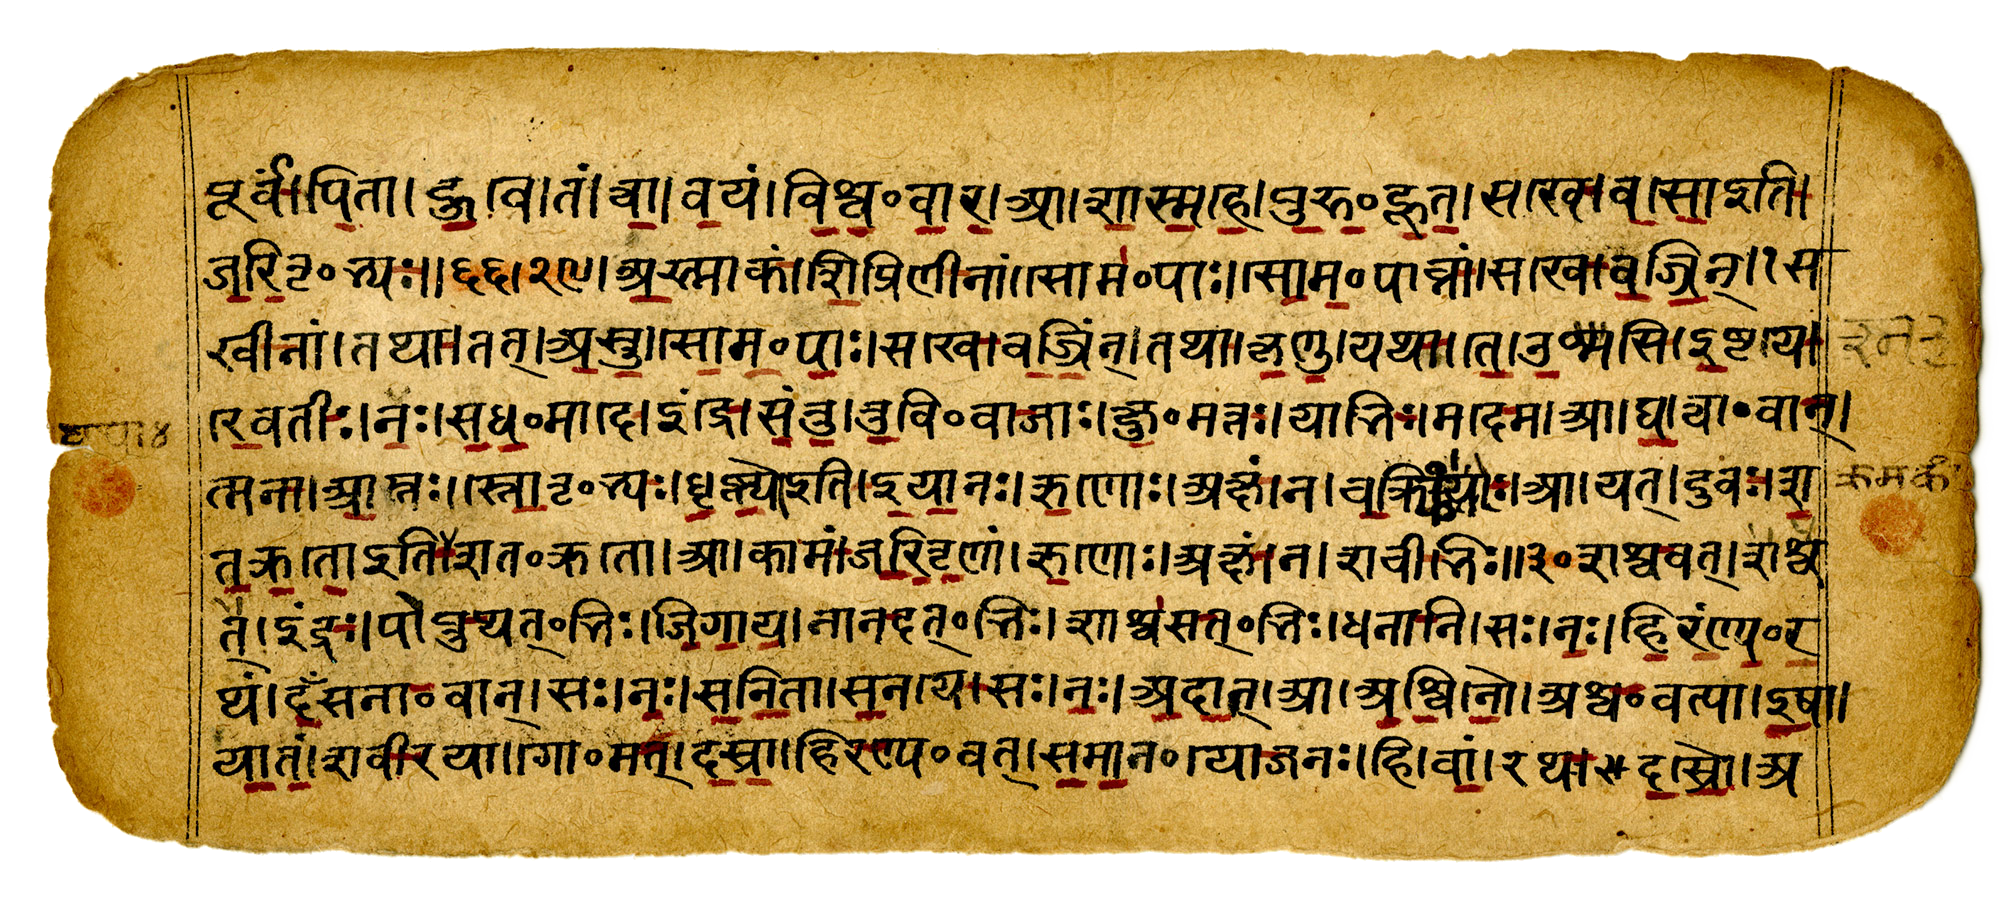 पूर्वं।पिता।हुवे।तं।त्वा।वयं।विश्व॰वार।आ।शास्महे।पुरु॰हूत।सखे।वसो।इति।
जरितृ॰भ्यः॥६६।२९।अस्माकं।शिप्रिणीनां।सोम॰पाः।सोम॰पाव्नां।सखे।वज्रिन्।स
खीनां।तथा।तत्।अस्तु।सोम॰पाः।सखे।वज्रिन्।तथा।कृणु।यथा।ते।उश्मसि।इष्टये।
रेवतीः।नः।सध॰मादे।इंद्रे।संतु।तुवि॰वाजाः।क्षु॰मंतः।याभिः।मदेम।आ।घ।त्वा॰वान्।
त्मना।आप्तः।स्तोतृ॰भ्यः।धृष्णो।इति।इयानः।ऋणोः।अक्षं।न।चक्र्योः।आ।यत्।दुवः।श
तक्रतो।इति।शत॰क्रतो।आ।कामं।जरितॄणां।ऋणोः।अक्षं।न।शचीभिः॥३०शश्वत्।शश्व
त्।इंद्रः।पोप्रुथत्॰भिः।जिगाय।नानदत्॰भिः।शाश्वसत्॰भिः।धनानि।सः।नः।हिरण्य॰र
थं।दँसना॰वान्।सः।नः।सनिता।सनये।सः।नः।अदात्।आ।अश्विनौ।अश्व॰वत्या।इषा।
यातं।शवीरया।गो॰मत्।दस्रा।हिरण्य॰वत्।समान॰योजनः।हि।वां।रथः।दस्रौ।अ